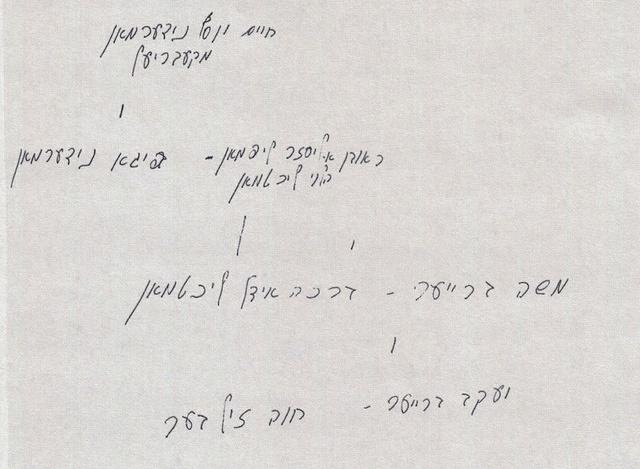 חיים יוסף נידערמאן
מקעבריעל
ראובן אליעזר ליפמאן - פיגא נידערמאן
ליכטמאן
משה ברייער - ברכה אידל ליכטמאן
יעקב ברייער - חוה זילבער